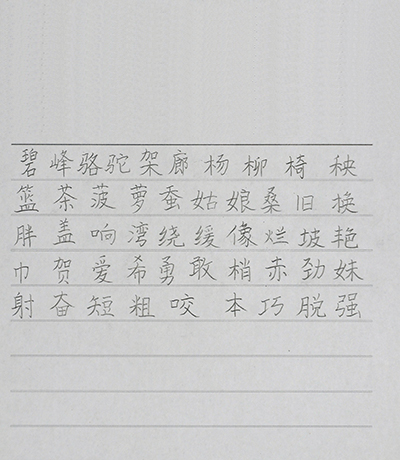 碧峰骆驼架廊杨柳椅秧
篮茶菠萝蚕姑娘桑旧换
胖盖响湾绕缓像烂坡艳
巾贺爱希勇敢梢赤劲妹
射奋短粗咬本巧脱强